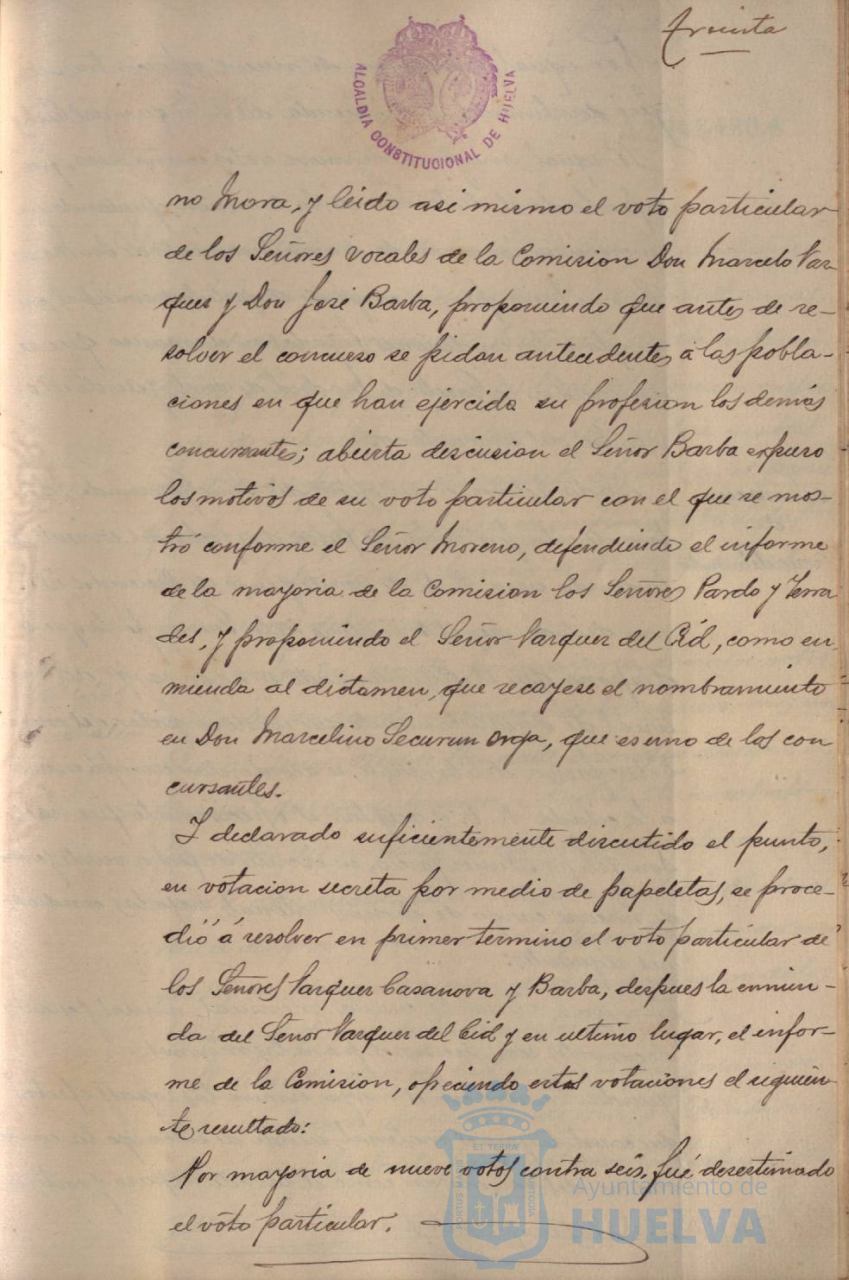 Treinta
ALCALDIA CONSTITUCIONAL DE HUELVA
no Mora, y leido asi mismo el voto particular
de los Señores vocales de la Comision Don Marcelo Vaz-
ques y Don José Barba, proponiendo que antes de re-
solver el concurso se pidan antecedentes á las pobla-
ciones en que han ejercido su profesion los demás
concursantes; abierta descusion el Señor Barba expuso
los motivos de su voto particular con el que se mos-
tró conforme el Señor Moreno, defendiendo el informe
de la mayoria de la Comision los Señores Pardo y Terra
des, y proponiendo el Señor Vazquez del Cid, como en-
mienda al dictamen, que recayese el nombramiento
en Don Marcelino Securun Orga, que es uno de los con
cursantes.
Y declarado suficientemente discutido el punto,
en votacion secreta por medio de papeletas, se proce-
dió á resolver en primer termino el voto particular de
los Señores Vazquez Casanova y Barba, despues la enmien-
da del Señor Vazquez del Cid y en ultimo lugar, el infor-
me de la Comision, ofreciendo estas votaciones el siguien
te resultado:
Por mayoria de nueve votos contra seis, fué desestimado
el voto particular.
Ayuntamiento de
HUELVA